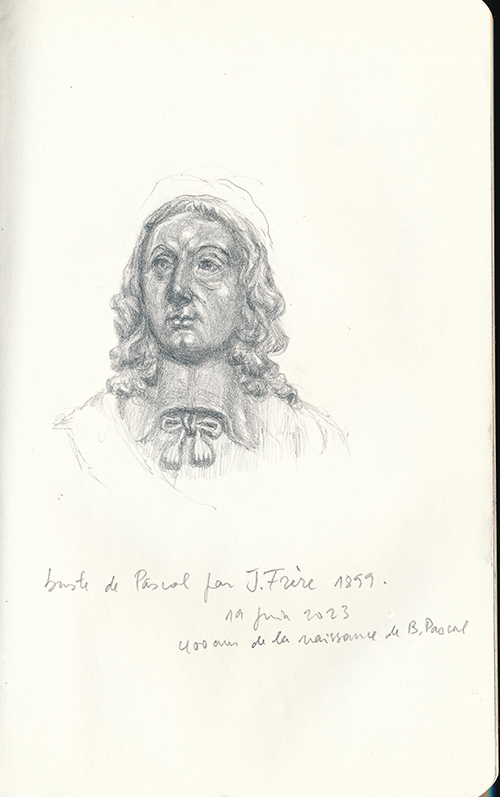 buste de Pascal par J. Frère 1899.
19 juin 2023
400 ans de la naissance de B. Pascal